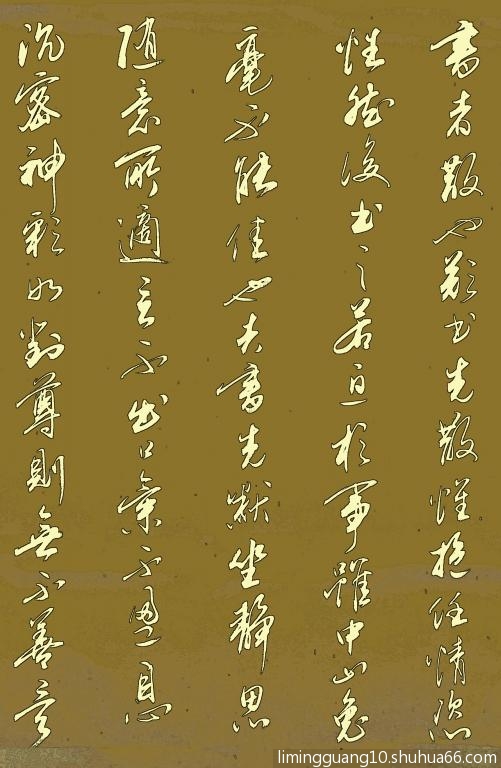 書者散也欲書先散懷抱任情恣
性然後書之若迫於事雖中山兔
毫不能佳也夫書先默坐靜思
隨意所適言不出口氣不盈息
沉密神彩如對尊則無不善矣
limingguang10.shuhua66.com